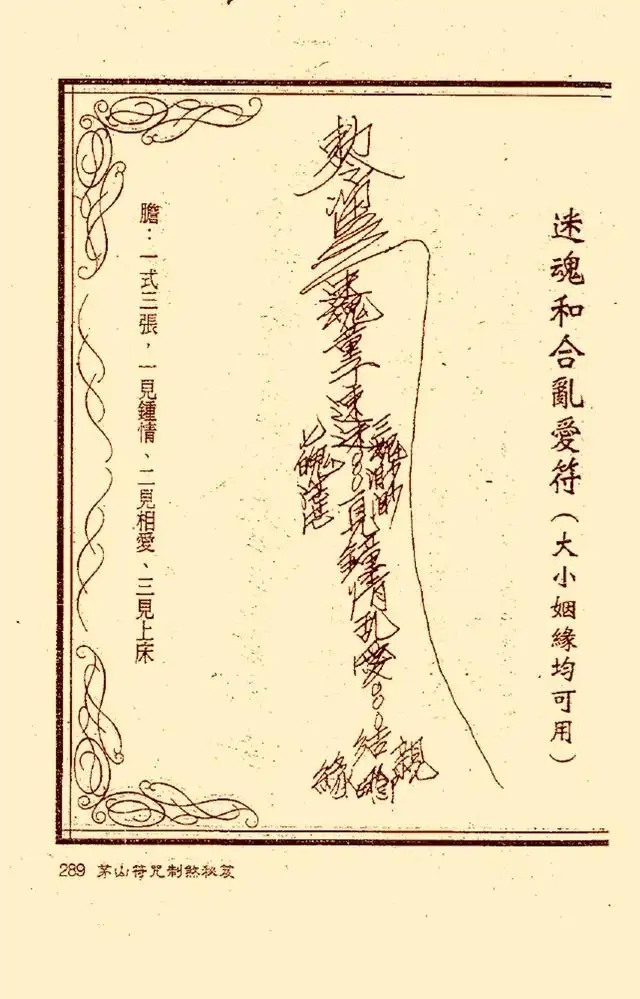 迷魂和合亂愛符（大小姻緣均可用）
敕令
魂童子速速
見鐘情乱愛
結
親
緣
膽：一式三張，一見鍾情、二見相愛、三見上床
289 茅山符咒制煞秘笈